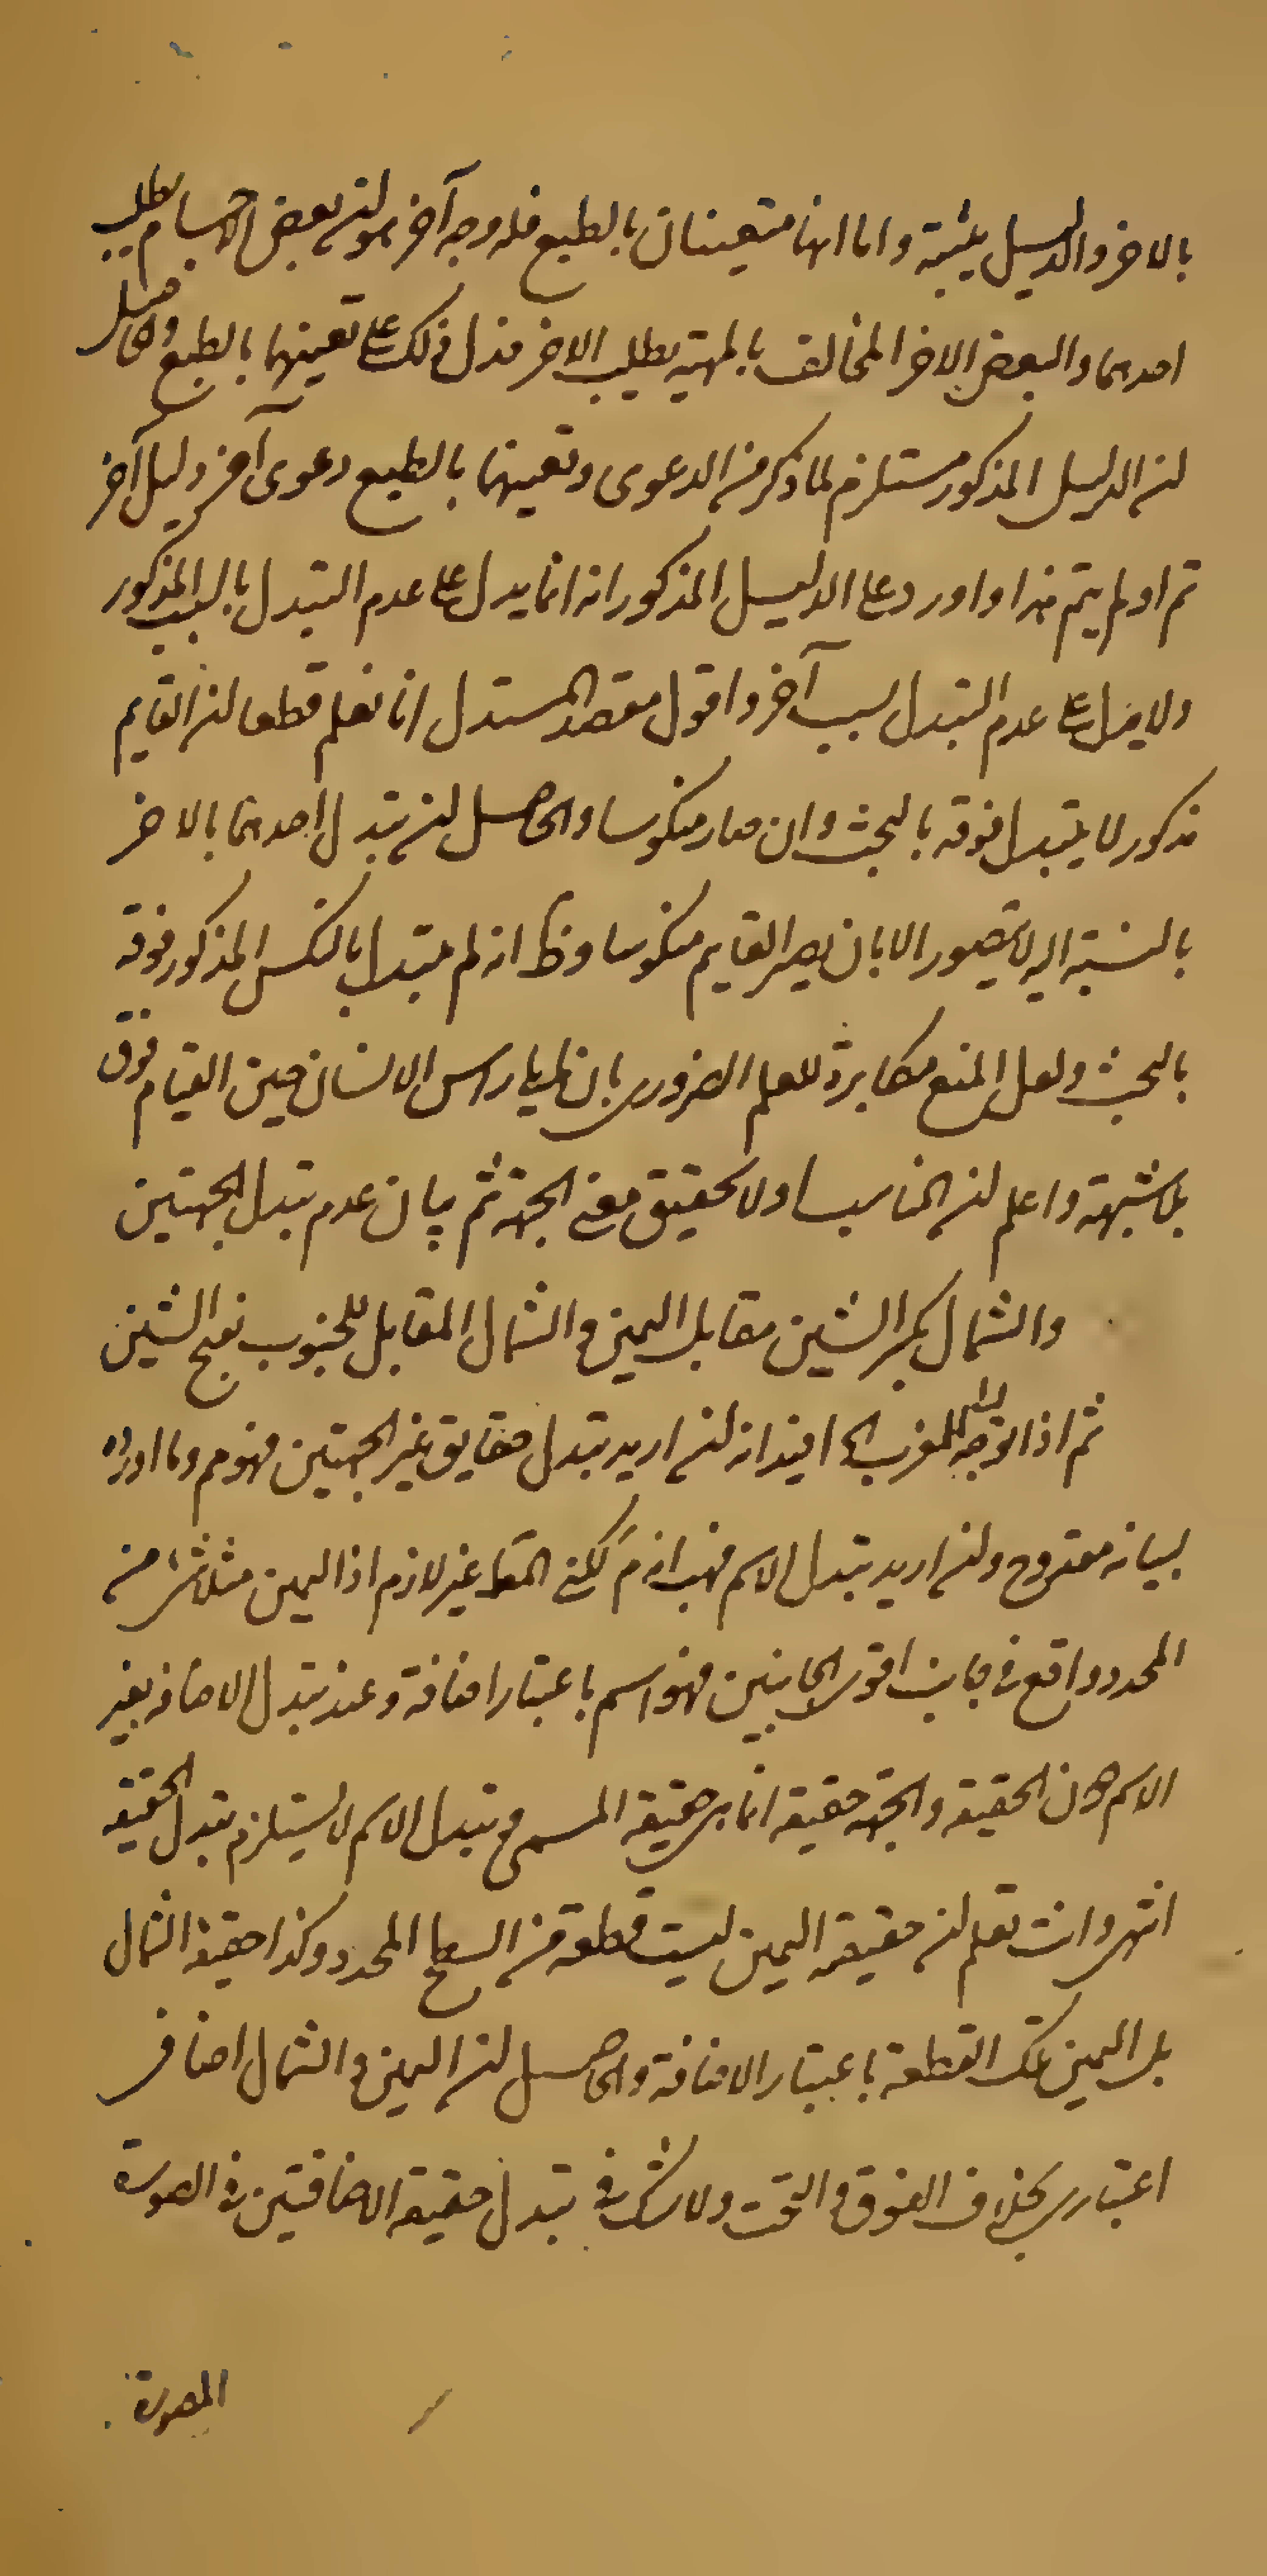 بالاخر والدليل يثبته واما انهما متعينان بالطبع فله وجه آخر هو ان بعض الاجسام يطلب
احدهما والبعض الاخر المخالف بالمهية يطلب الاخر فدل ذلك على تعينهما بالطبع والحاصل
ان الدليل المذكور مستلزم لما ذكر من الدعوى وتعينهما بالطبع دعوى آخر ودليل آخر
ثم او لم يتم هذا و اورد على الدليل المذكور انه انما يدل على عدم التبدل بالسبب المذكور
ولا يدل على عدم التبدل بسبب آخر واقول مقصد المستدل انا نعلم قطعا ان القايم
مذكور لا يتبدل فوقه بالتحت وان صار منكوسا والحاصل ان تبدل احدهما بالاخر
بالنسبة اليه لا يتصور الا بان يصير القايم منكوسا وظ انه لم يتبدل بالنكس المذكور فوقه
بالتحت ولعل المنع مكابرة للعلم الضروري بان ما يلي راس الانسان حين القيام فوق
بلا شبهة واعلم ان المناسب اولا تحقيق معنى الجهة ثم بيان عدم تبدل الجهتين
والشمال بكسر الشين مقابل اليمين والشمال المقابل للجنوب بفتح الشين
ثم اذا توجه للمغرب الخ فيه انه ان اريد تبدل حقايق غير الجهتين فهو مم وما اورده
لبيانه مقدوح وان اريد تبدل الاسم فهب انه م لكن المط غير لازم اذ اليمين مثلا شئ من
المحدد واقع في جانب اقوى الجانبين فهو اسم باعتبار اضافة وعند تبدل الاضافة يغير
الاسم دون الحقيقة والجهة حقيقة انما هي حقيقة المسمى وتبدل الاسم لا يستلزم تبدل الحقيقة
انتهى وانت تعلم ان حقيقة اليمين ليست قطعة من السطح المحدد وكذا حقيقة الشمال
بل اليمين تلك القطعة باعتبار الاضافة والحاصل ان اليمين والشمال اضافي
اعتباري بخلاف الفوق والتحت ولا شك في تبدل حقيقة الاضافتين في الصورة
المصورة